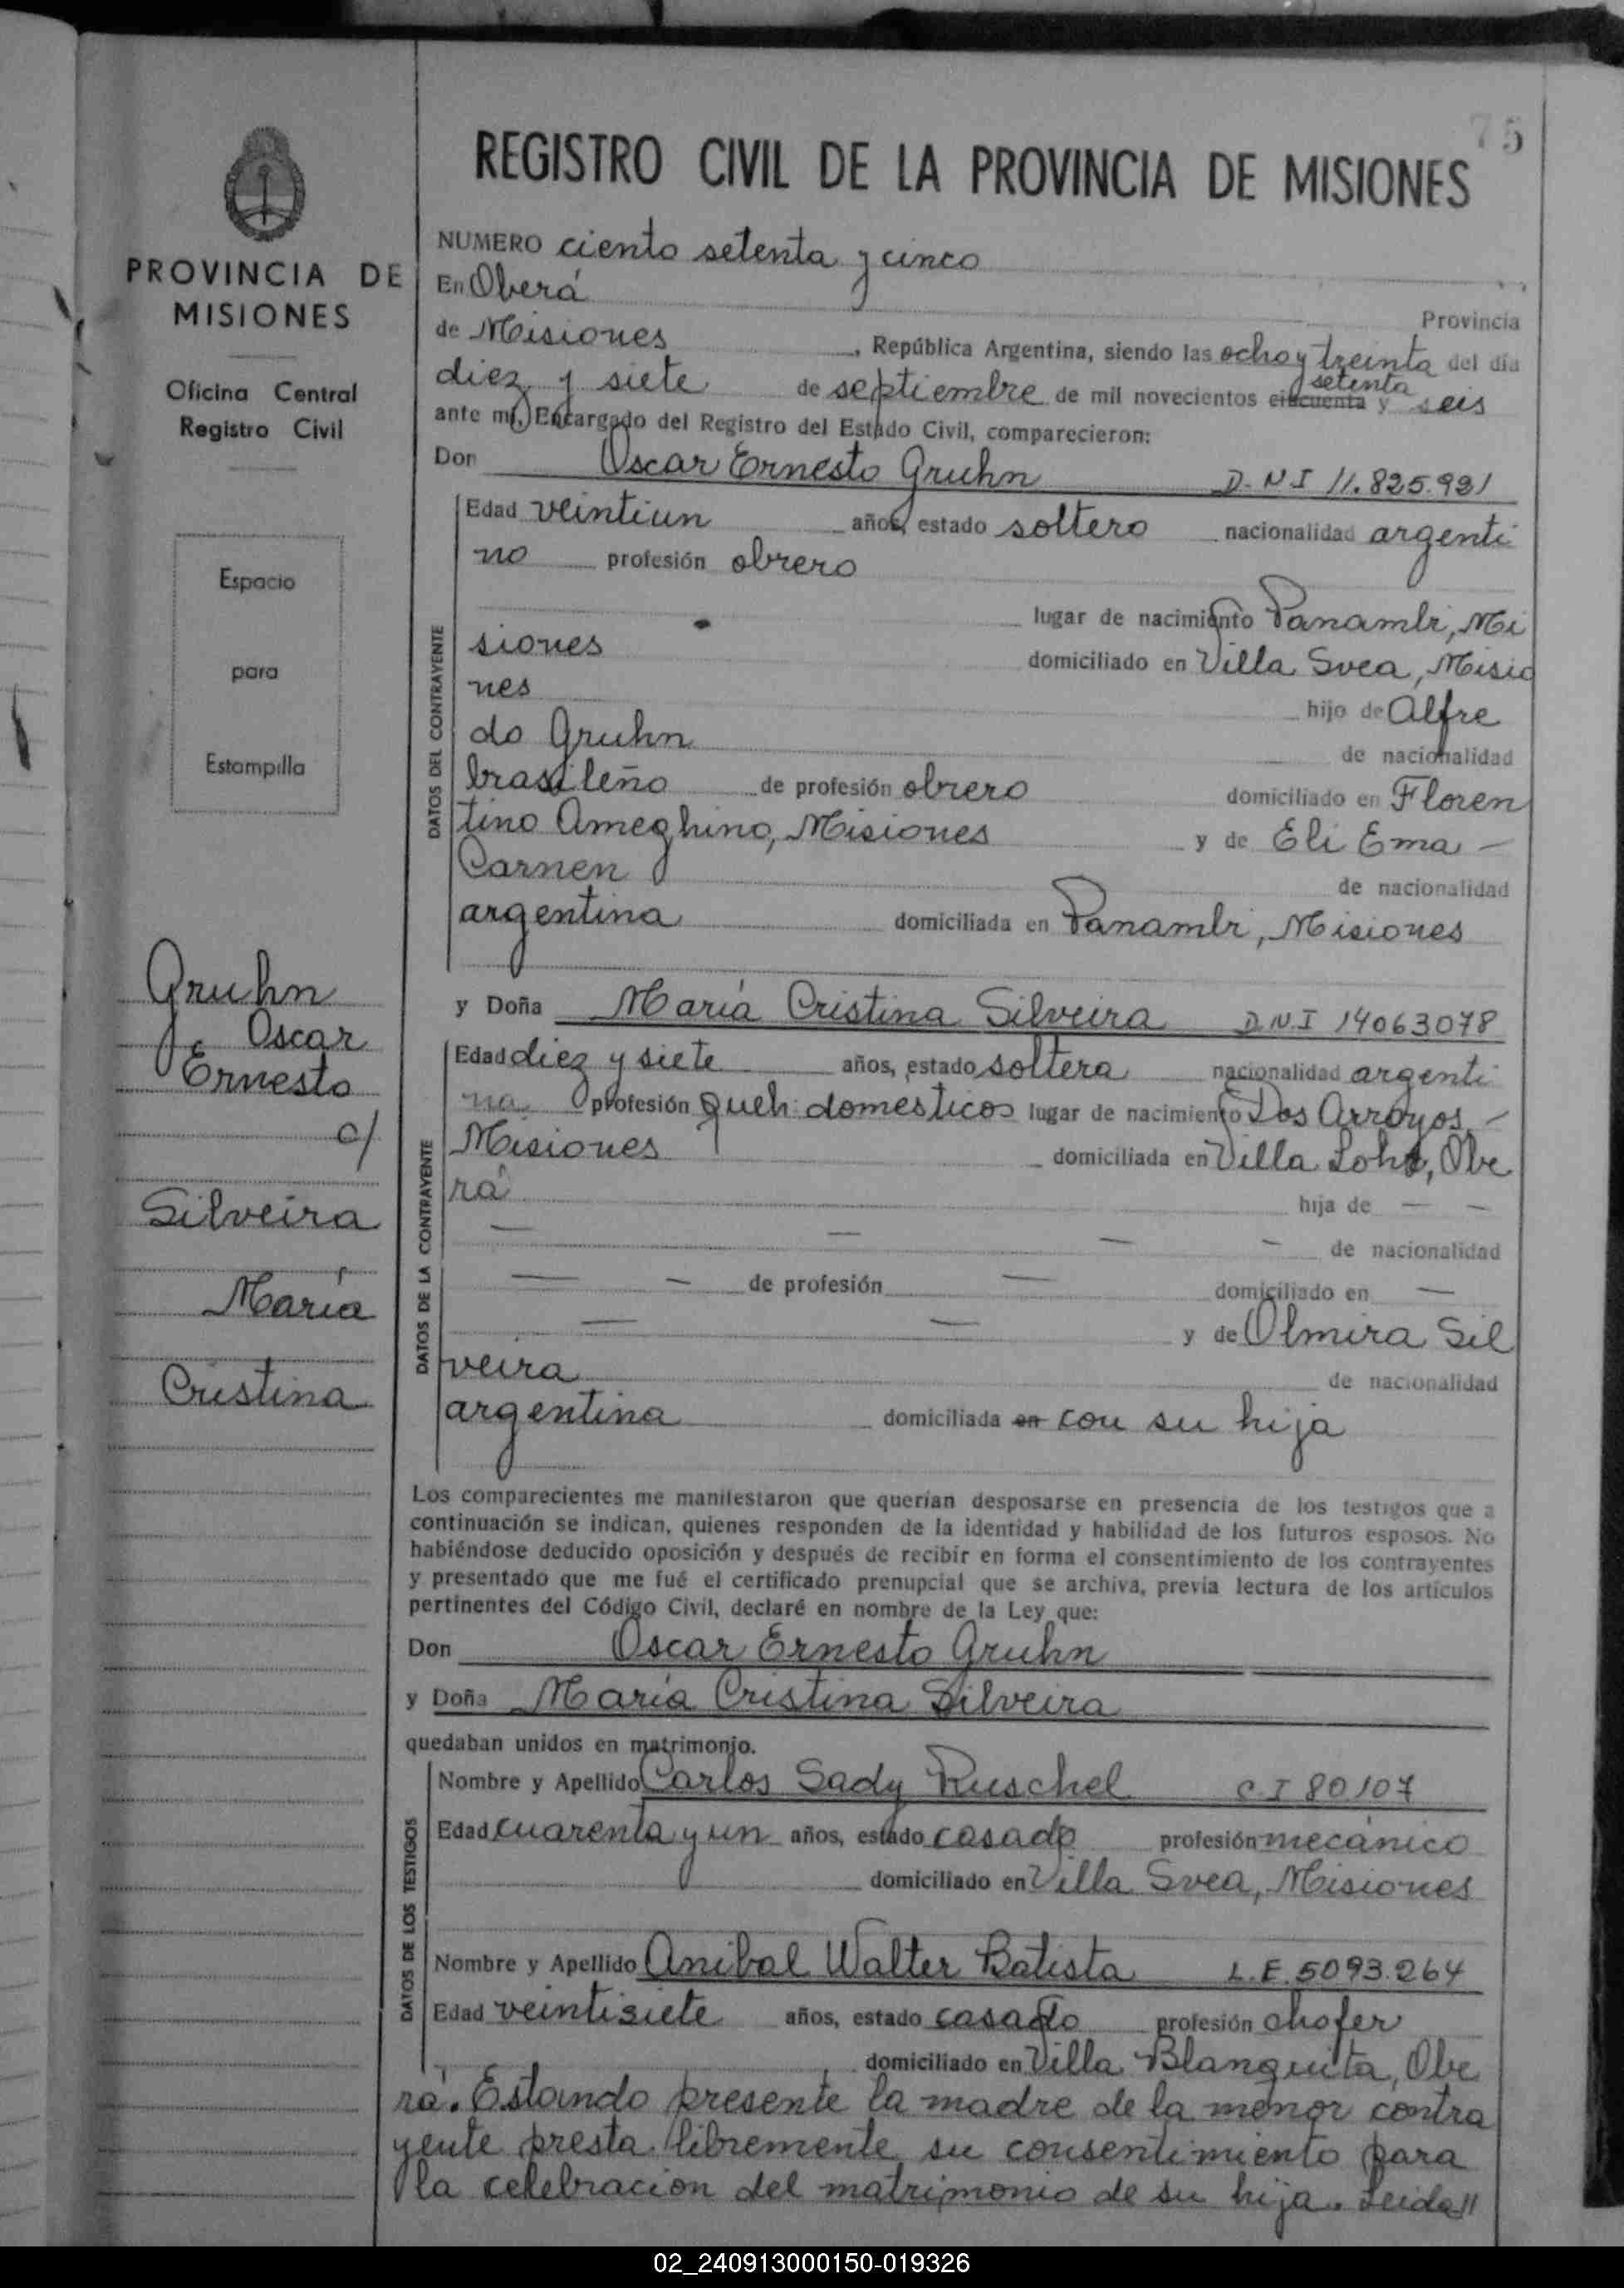 75
REGISTRO CIVIL DE LA PROVINCIA DE MISIONES
PROVINCIA DE
MISIONES
Oficina Central
Registro Civil
Espacio
para
Estampilla
Gruhn
Oscar
Ernesto
c/
Silveira
María
Cristina
NUMERO ciento setenta y cinco
En Oberá
Provincia
de Misiones, República Argentina, siendo las ocho y treinta del día
setenta
diez y siete de septiembre de mil novecientos cincuenta y seis
ante mí, Encargado del Registro del Estado Civil, comparecieron:
Don Oscar Ernesto Gruhn D.N.I 11.825.921
DATOS DEL CONTRAYENTE
Edad veintiun años, estado soltero nacionalidad argenti
no profesión obrero
lugar de nacimiento Panambi, Mi
siones domiciliado en Villa Svea, Misio
nes hijo de Alfre
do Gruhn de nacionalidad
brasileño de profesión obrero domiciliado en Floren
tino Ameghino, Misiones y de Eli Ema -
Carnen de nacionalidad
argentina domiciliada en Panambi, Misiones
y Doña María Cristina Silveira D.N.I 14063078
DATOS DE LA CONTRAYENTE
Edad diez y siete años, estado soltera nacionalidad argenti
na profesión queh. domesticos lugar de nacimiento Dos Arroyos, -
Misiones domiciliada en Villa , Obe
rá hija de — —
— — — — de nacionalidad
— — de profesión — domiciliado en —
— — y de Olmira Sil
veira de nacionalidad
argentina domiciliada en con su hija
Los comparecientes me manifestaron que querían desposarse en presencia de los testigos que a
continuación se indican, quienes responden de la identidad y habilidad de los futuros esposos. No
habiéndose deducido oposición y después de recibir en forma el consentimiento de los contrayentes
y presentado que me fué el certificado prenupcial que se archiva, previa lectura de los artículos
pertinentes del Código Civil, declaré en nombre de la Ley que:
Don Oscar Ernesto Gruhn
y Doña María Cristina Silveira
quedaban unidos en matrimonio.
DATOS DE LOS TESTIGOS
Nombre y Apellido Carlos Sady Ruschel C.I 80107
Edad cuarenta y un años, estado casado profesión mecánico
domiciliado en Villa Svea, Misiones
Nombre y Apellido Anibal Walter Batista L.E. 5093.264
Edad veintisiete años, estado casado profesión chofer
domiciliado en Villa Blanquita, Obe
rá. Estando presente la madre de la menor contra
yente presta libremente su consentimiento para
la celebracion del matrimonio de su hija. Leida//
02_240913000150-019326